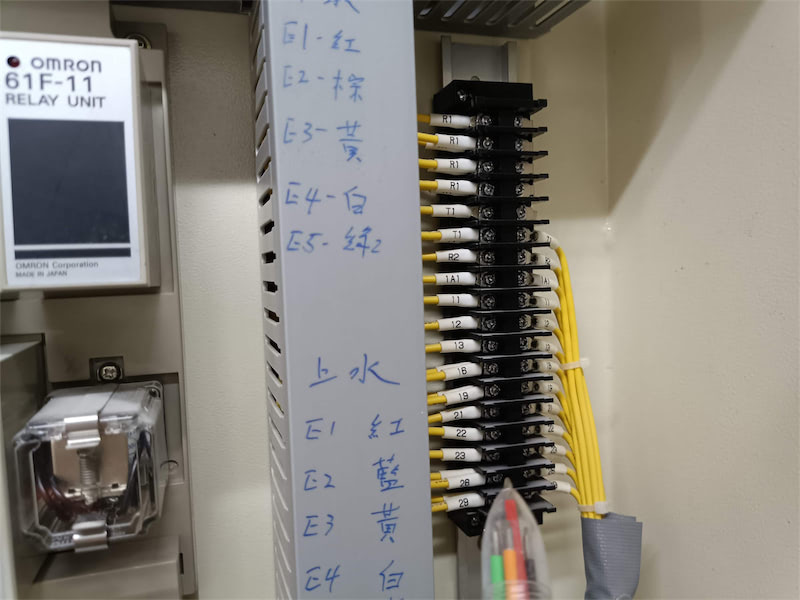 OMRON
61F-11
RELAY UNIT
OMRON Corporation
MADE IN JAPAN
水
E1-紅
E2-棕
E3-黃
E4-白
E5-綠2
上水
E1 紅
E2 藍
E3 黃
E4 白
R1
R1
R1
R1
T1
T1
R2
1A1
11
12
13
16
19
21
22
23
28
29